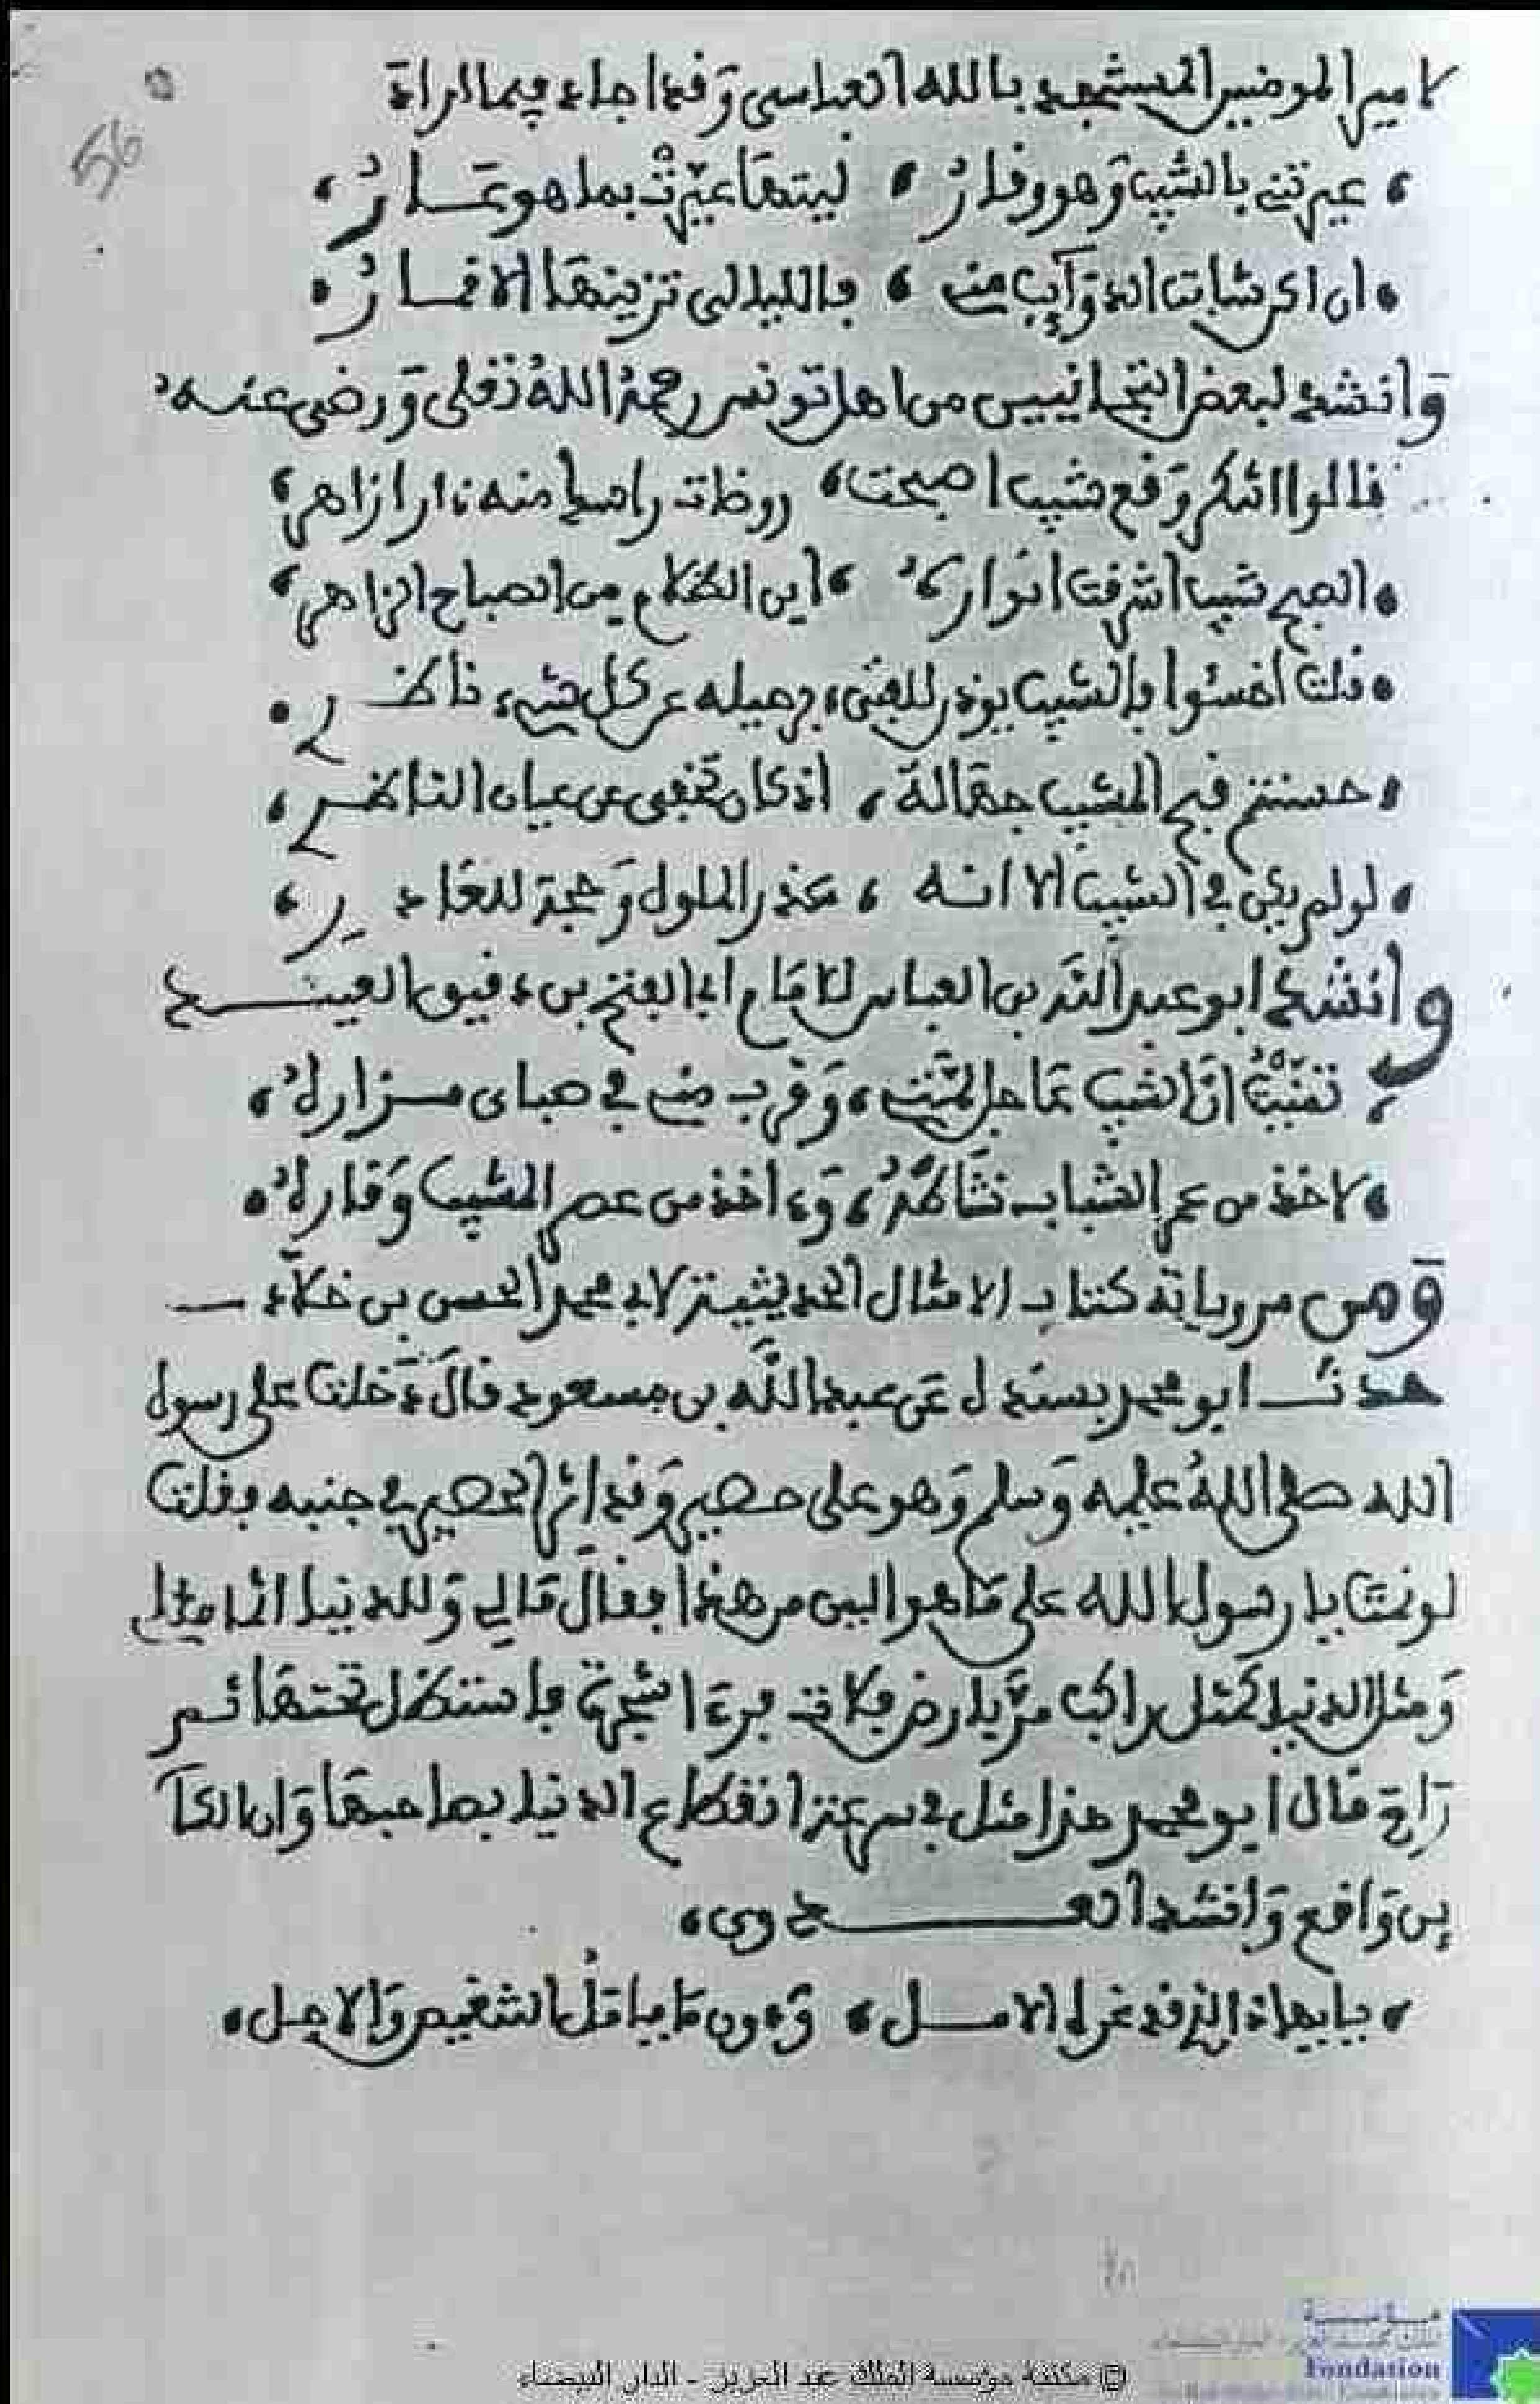 56
لامير المومنين المستنجد بالله العباسي وقد اجاد فيما اراد
عيرتني بالشيب وهو وقار ليتها عيرت بما هو عار
ان اكن شابت الذوآيب مني فالليالي تزينها الاقمار
وانشد لبعض التجانيين من اهل تونس رحمه الله تعلى ورضى عنه
قالوا اشكر وقع شيب اصبحت روظات راسك منه ازاهر
الصبح شيب اشرقت انواره اين الظلام من الصباح الزاهر
قلت اخسئوا بالشيب يوذر للفتى برحيله عن كل شيء ناظر
حسنتم قبح المشيب بمقالة اذ كان تخفى عن عيان الناظر
لولم يكن في الشيب الا انه عذر الملول وحجة للغادر
وانشد ابو عبد الله بن العباس للامام ابي الفتح بن دقيق العيد
تمنيت ان الشيب عاجل لمتي وقرب مني في صباي مزاره
لاخذ من عصر الشباب نشاطه وءاخذ من عصر المشيب وقاره
ومن مروياته كتاب الامثال الحديثية لابي محمد الحسن بن خلاد
حدث ابو محمد بسنده ل عن عبد الله بن مسعود قال دخلت على رسول
الله صلى الله عليه وسلم وهو على حصير وقد اثر الحصير في جنبه فقلت
لو نمت يا رسول الله على ما هو الين من هذا فقال مالي وللدنيا انما مثلي
ومثل الدنيا كمثل راكب مر بارض فلات فرءا شجرة فاستظل تحتها ثم
راح قال ابو محمد هذا مثل في سرعة انقطاع الدنيا بصاحبها وان الكا
ين واقع وانشد العدوى
يا يهاذا الذ قد غره الامل ودون ما يامل التنغيص والاجل
© مكتبة مؤسسة الملك عبد العزيز - الدار البيضاء
Fondation